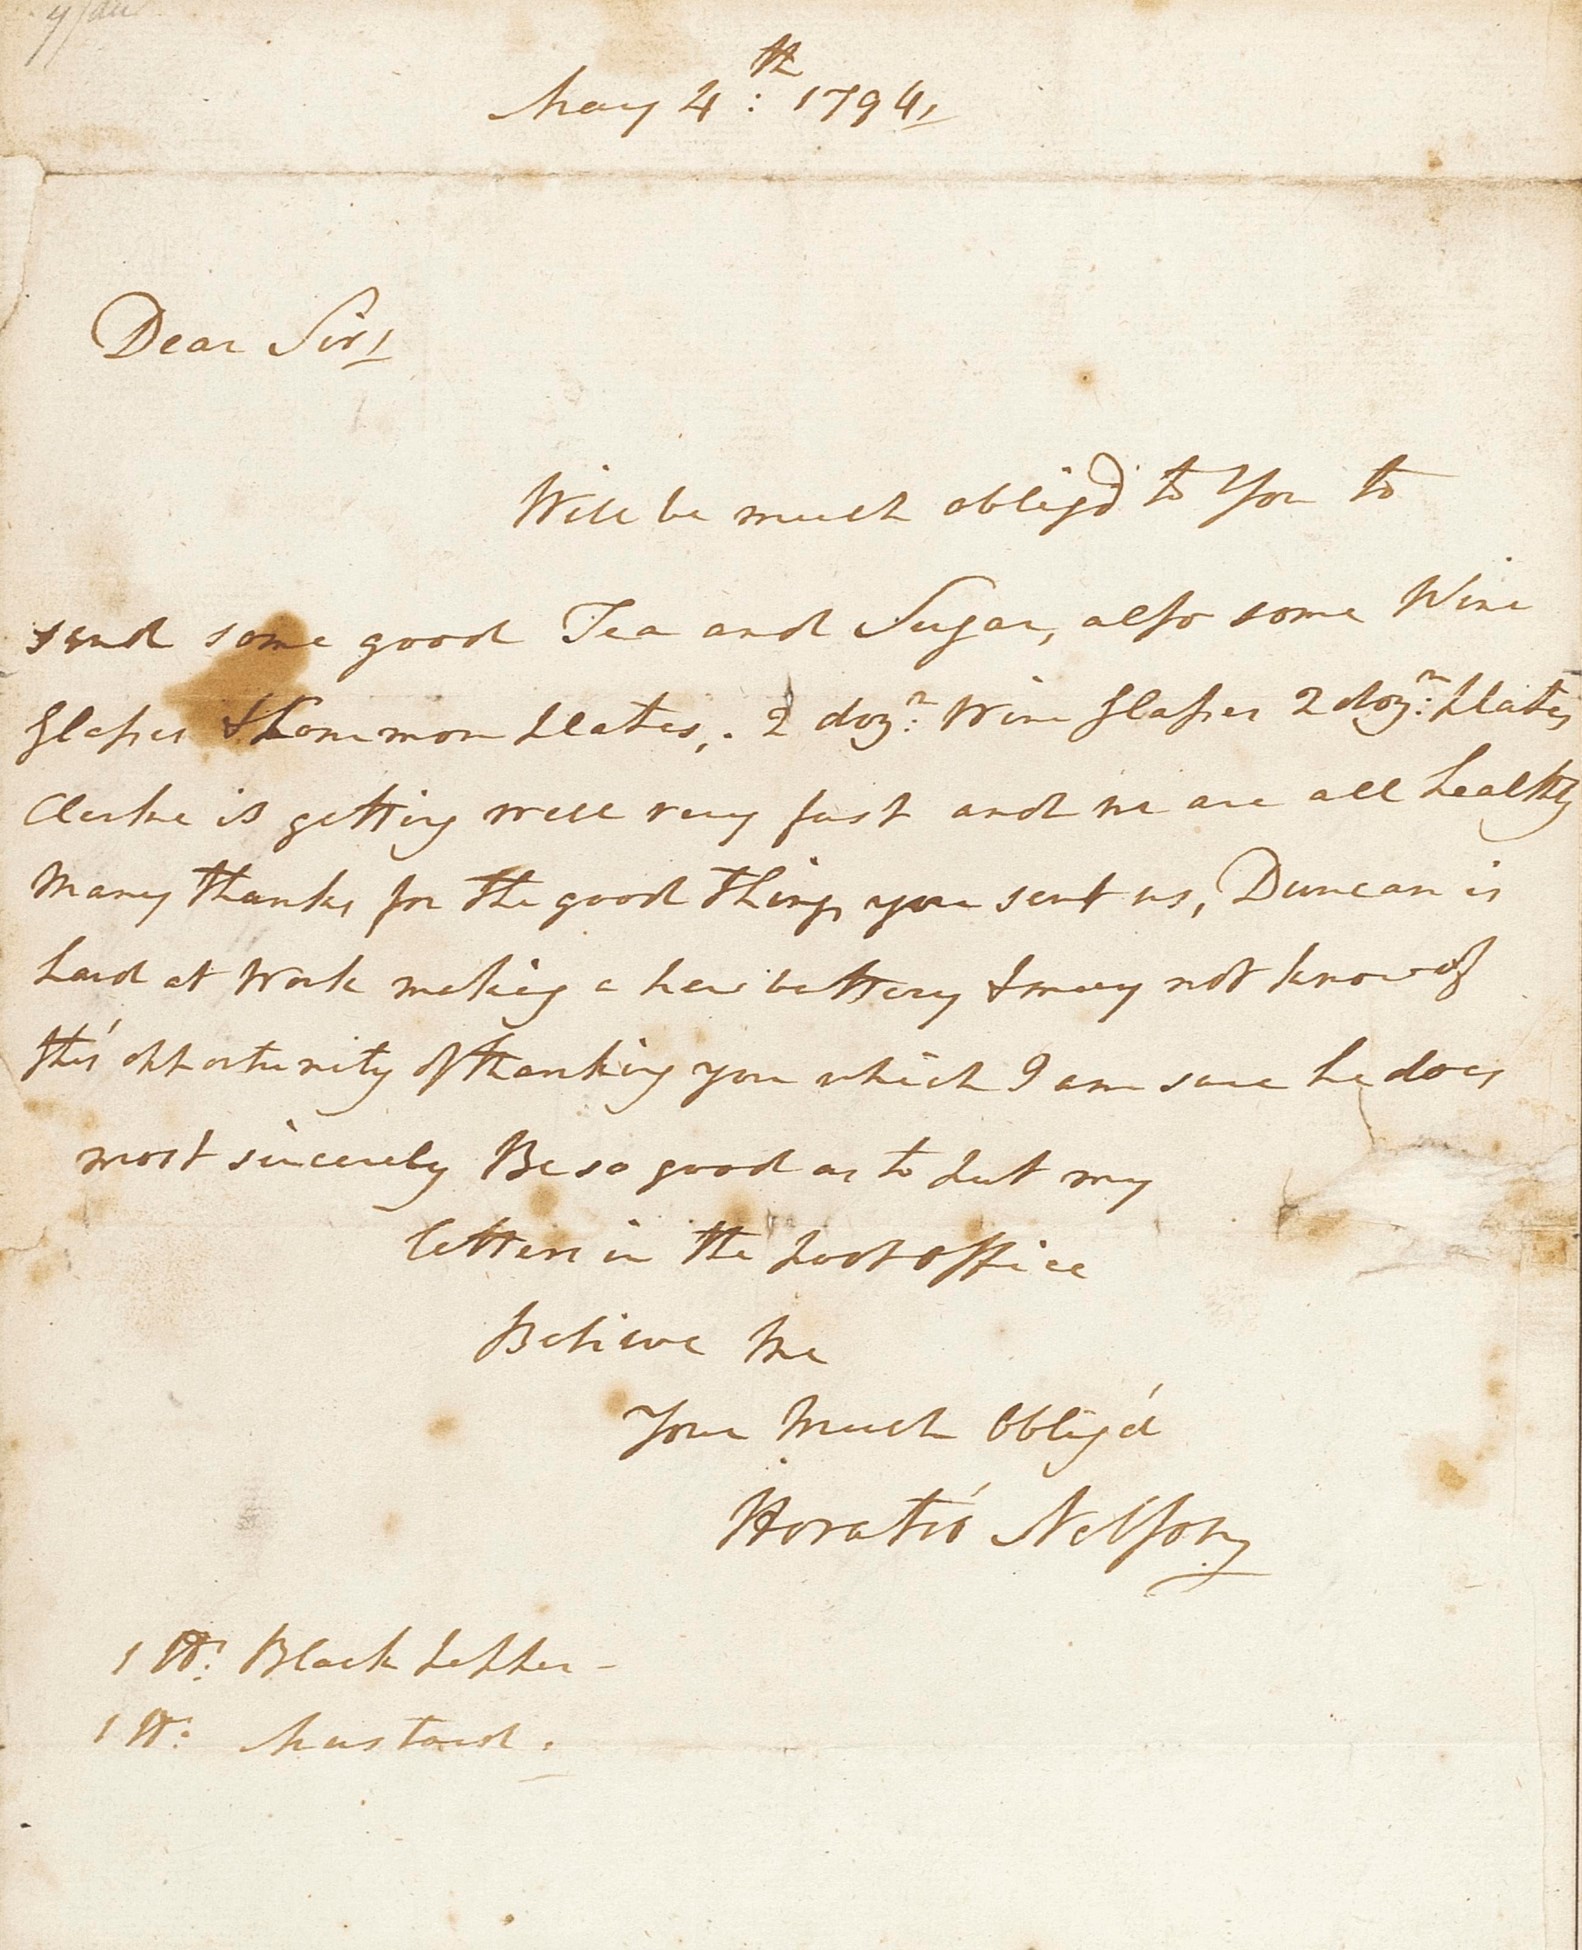 May 4th: 1794,
Dear Sir,
Will be much obligd to You to
send some good Tea and Sugar, also some Wine
glasses & Common plates,. 2 dozn: Wine glasses 2 dozn: plates
Clerke is getting well very fast and we are all healthy
Many thanks for the good things you sent us, Duncan is
hard at Work making a new battery & may not know of
this opportunity of thanking you which I am sure he does
most sincerely Be so good as to put my
letters in the post office
Believe Me
Your Much Oblig'd
Horatio Nelson
1 lb: Black pepper -
1 lb: Mustard.